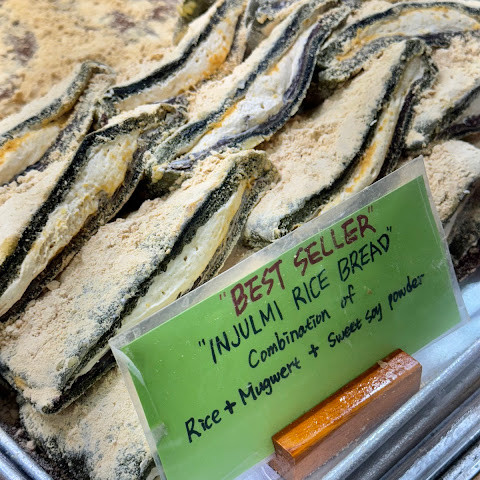 "BEST SELLER"
"INJULMI RICE BREAD"
Combination of
Rice + Mugwert + Sweet soy powder